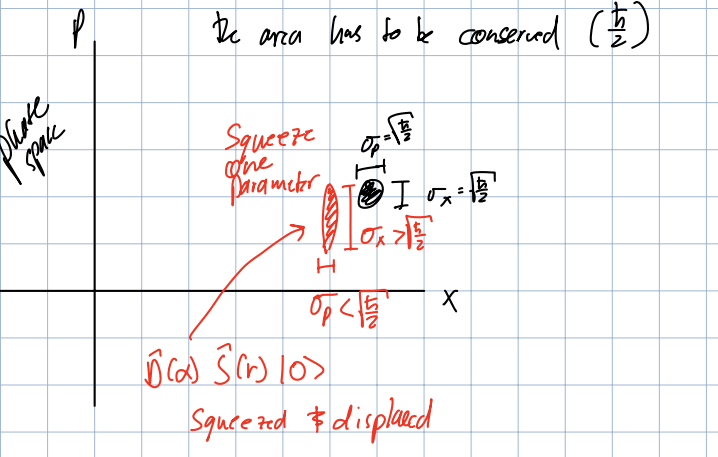 P
the area has to be conserved (ħ/2)
phase
space
Squeeze
one
parameter
σ_p = √ħ/2
σ_x = √ħ/2
σ_x > √ħ/2
σ_p < √ħ/2
X
D̂(α) Ŝ(r) |0>
Squeezed & displaced